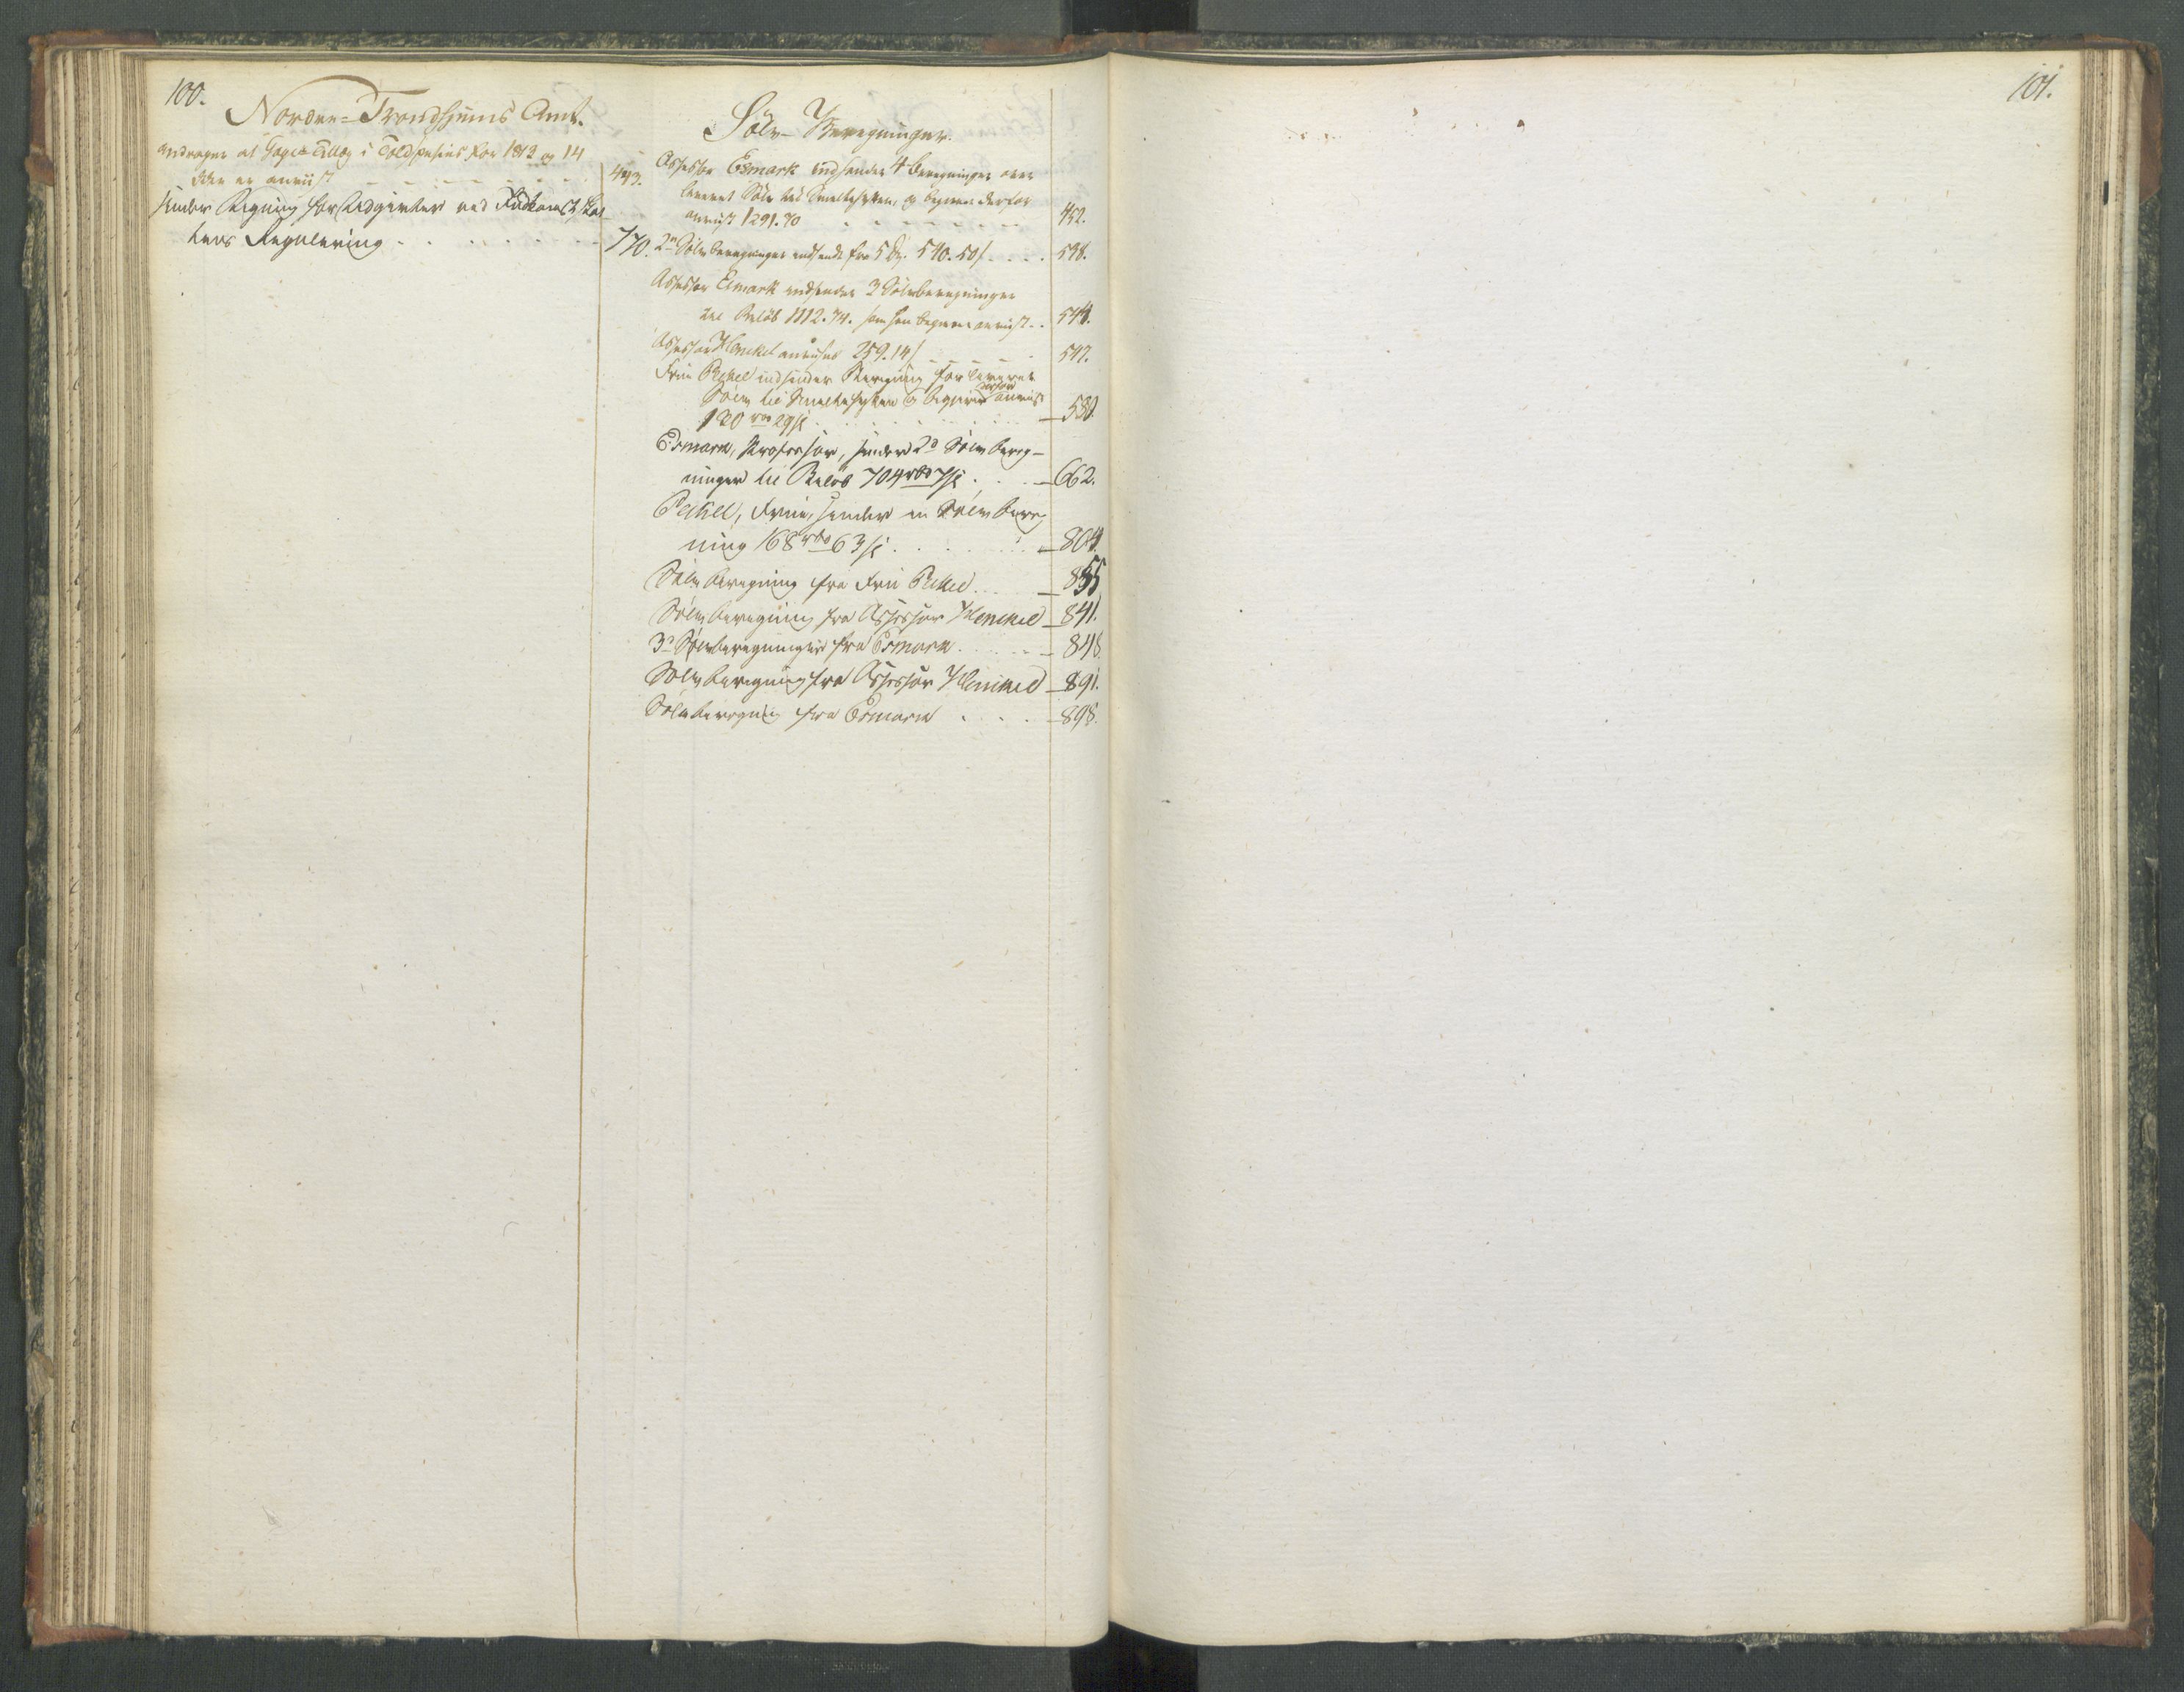 100.
Nordre-Trondhjems Amt.
andrager at Gage Tillæg i Toldpensions for 1813 og 14
ikke er anviist 443.
sender Regning for Udgivter ved
tens Regulering 770.
Sølv-Beregninger.
Assessor Esmark indsender 4 Beregninger over
leveret Sølv til Smeltehytten, og begierer derfor
anviist 1291.70 452.
2de Sølvberegninger indsendt fra 540.50 598.
Assessor Esmark indsender 3 Sølvberegninger
til Beløb 1112.74. som han begierer anviist 544.
Assessor Henckel anvises 259.14 547.
Frue Peckel indsender Beregning for leveret
Sølv til Smeltehytten og begierer derfor anviist
120 rbd 29 s 580.
Esmark, Professor, sender 2de Sølv bereg-
ninger til Beløb 704 rbd 7 s 662.
Peckel, Frue, sender en Sølv bereg
ning 168 rbd 63 s 804.
Sølv beregning fra Frue Peckel 835
Sølv beregning fra Assessor Henckel 841.
3de Sølvberegninger fra Esmark 848.
Sølv beregning fra Assessor Henckel 891.
Sølv beregning fra Esmark 898.
101.